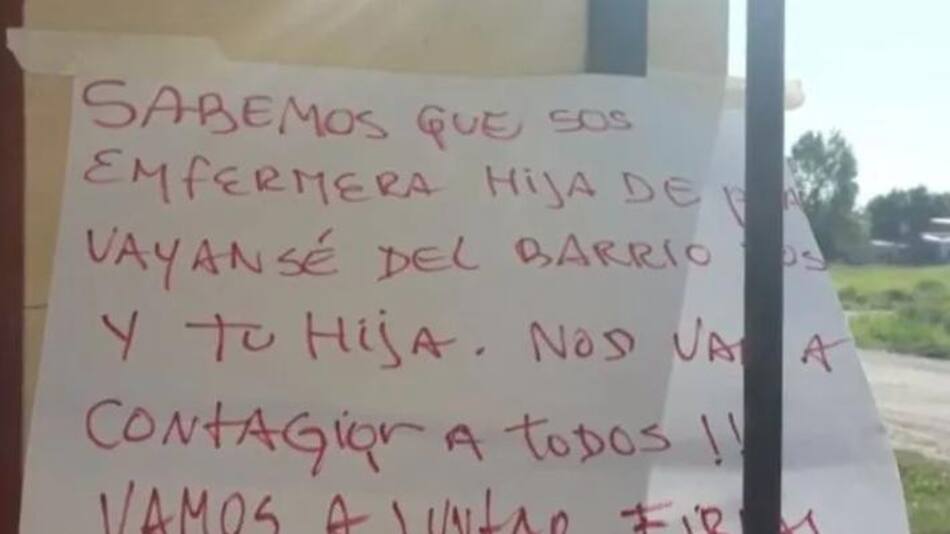 SABEMOS QUE SOS
ENFERMERA HIJA DE
VAYANSÉ DEL BARRIO
Y TU HIJA. NOS VAN A
CONTAGIAR A TODOS !!
VAMOS A JUNTAR